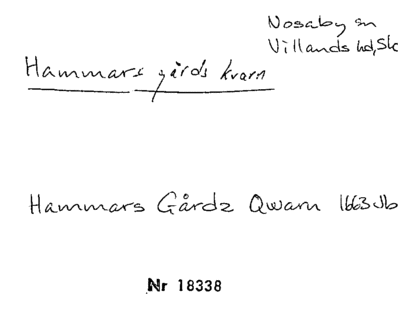 Nosaby sn
Villands hd, Sk
Hammars gårds kvarn
Hammars Gårdz Qwarn 1663 Jb
Nr 18338